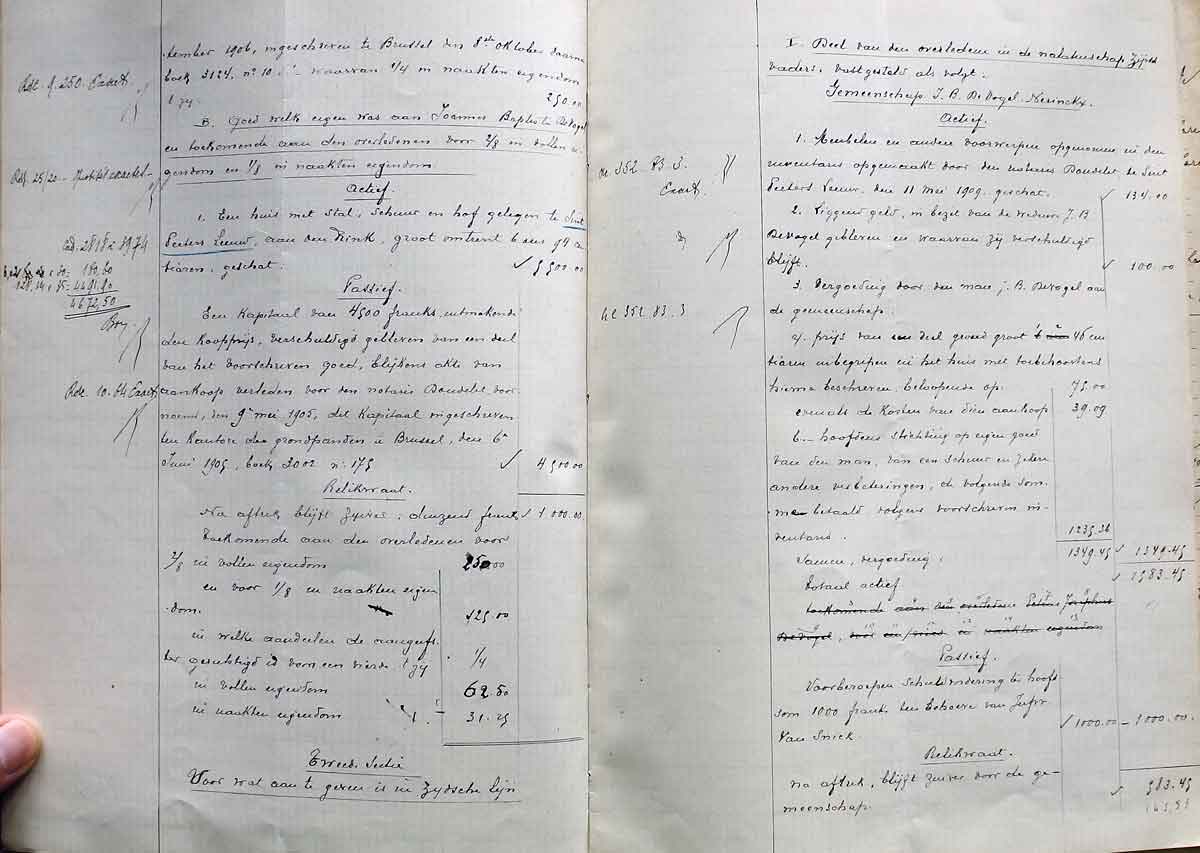 tember 1906, ingeschreven te Brussel den 8ste oktober daarna
boek 3124, n° 10 waarvan 1/4 in naakten eigendom
't zy: 250.00
Rde. 9.250. Exact
B. Goed welk eigen was aan Joannes Baptiste De Vogel
en toekomende aan den overledenen voor 2/8 in vollen ei-
gendom en 1/8 in naakten eigendom
Actief.
1. Een huis met stal, schuur en hof gelegen te Sint
Peeters Leeuw, aan den Rink, groot omtrent 6 aren 99 cen-
tiaren, geschat. 5500.00
180,60
4491,90
4672,50
Passief.
Een kapitaal van 4500 franks, uitmakende
den koopprijs, verschuldigd gebleven van een deel
van het voorschreven goed, blijkens akte van
aankoop verleden voor den notaris Daudelet voor-
noemd, den 9n mei 1905, dit kapitaal ingeschreven
ten kantore der grondpanden te Brussel, den 6n
Juni 1905, boek 3002 n: 175 4500.00
Rde. 10.64 Exact
Relikwaat.
Na aftrek blijft zuiver: duizend frank 1000.00
Toekomende aan den overledenen voor
2/8 in vollen eigendom 250.00
en voor 1/8 in naakten eigen
dom. 125.00
in welke aandeelen de aangeef-
ster gerechtigd is voor een vierde 't zy 1/4
in vollen eigendom 62.50
in naakten eigendom 31.25
Tweede Sectie
Voor wat aan te geven is in zydsche lijn
V. Deel van den overledenen in de nalatenschap zijns
vaders, vastgesteld als volgt.
Gemeenschap J. B. De Vogel-Nerinckx.
Actief.
1. Meubelen en andere voorwerpen opgenomen in den
inventaris opgemaakt door den notaris Daudelet de Sint
Peeters Leeuw, den 11 Mei 1909. geschat. 134.00
352 B3 3.
Exact.
2. Liggend geld, in bezit van de weduwe J. B
De Vogel gebleven en waarvan zij verschuldigd
blijft. 100.00
3. Vergoeding door den man J. B. De Vogel aan
de gemeenschap.
352.83.3
a. prijs van een deel grond groot 46 cen
tiaren inbegrepen in het huis met toebehoorten
hierna beschreven, beloopende op: 75.00
evenals de kosten van dien aankoop 39.09
b.- hoofdens stichting op eigen goed
van den man, van een schuur en zekere
andere verbeteringen, de volgende som-
me betaald volgens voorschreven in-
ventaris. 1235.36
Samen, vergoeding: 1349.45 1349.45
Totaal actief 1583.45
toekomende aan den overledene Petrus Josephus
De Vogel, voor in naakten eigendom
Passief.
Voorberoepen schuldvordering te hoofd-
som 1000 franks ten behoeve van Jufvr
Van Snick. 1000.00 1000.00
Relikwaat.
na aftrek, blijft zuiver voor de ge-
meenschap. 583.45